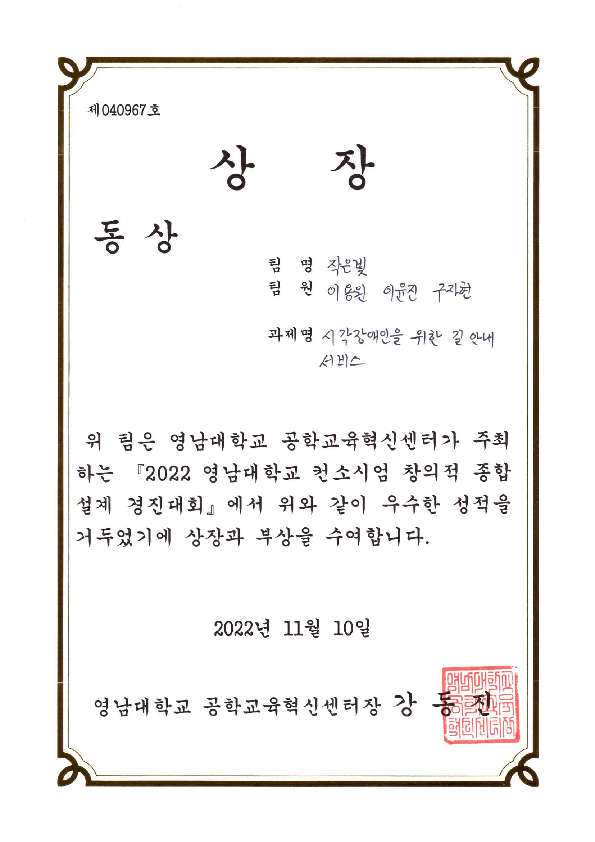 제040967호
상 장
동 상
팀 명 작은빛
팀 원 이용원 이윤진 구자현
과제명 시각장애인을 위한 길 안내
서비스
위 팀은 영남대학교 공학교육혁신센터가 주최
하는 『2022 영남대학교 컨소시엄 창의적 종합
설계 경진대회』에서 위와 같이 우수한 성적을
거두었기에 상장과 부상을 수여합니다.
2022년 11월 10일
영남대학교 공학교육혁신센터장 강 동 진
영남대학교
공학교육
혁신센터장